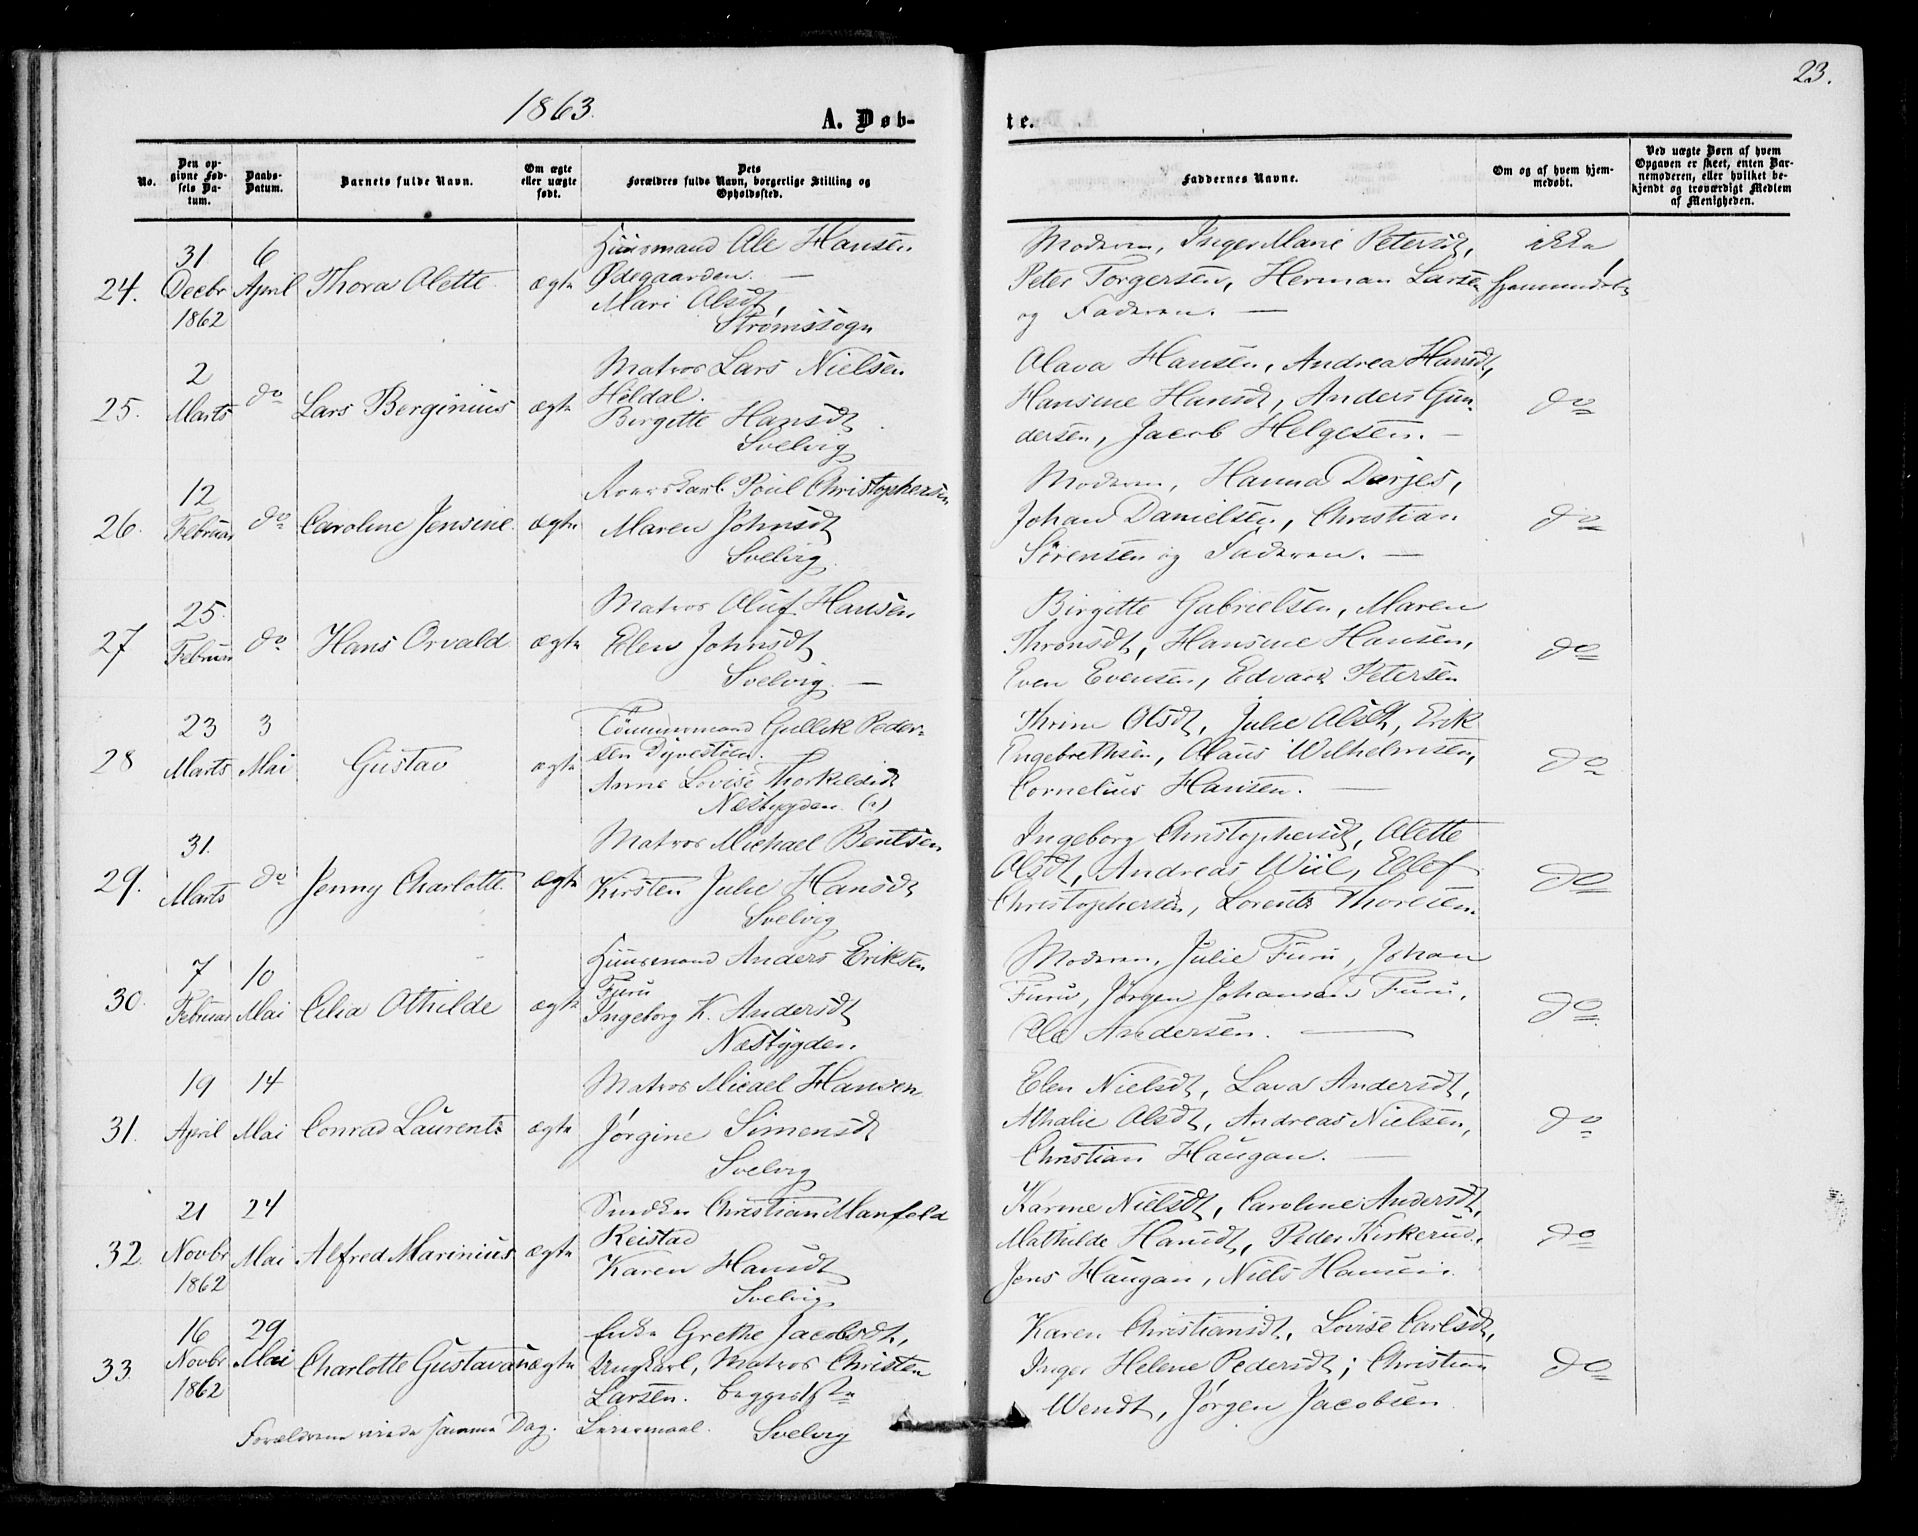 1863.
A. Døb-
te.
23.
No.
Den op-
givne Fød-
sels Da-
tum.
Daabs-
Datum.
Barnets fulde Navn.
Om ægte
eller uægte
født.
Dets
Forældres fulde Navn, borgerlige Stilling og
Opholdssted.
Faddernes Navne.
Om og af hvem hjem-
medøbt.
Ved uægte Børn af hvem
Opgaven er skeet, enten Bar-
nemoderen, eller hvilket be-
kjendt og troværdigt Medlem
af Menigheden.
24.
31
Decbr
1862
6
April
Thora Olette
ægte
Huusmand Ole Hansen
Ødegaarden. —
Mari Olsdt,
Strømssogn
Moderen, Inger Marie Petersdt,
Peter Torgersen, Herman Larsen
og Faderen. —
ikke
hjemmedøbt
25.
2
Marts
do
Lars Berginius
ægte
Matros Lars Nielsen
Høldal.
Birgitte Hansdt
Svelvig
Olava Hansen, Andrea Hansdt,
Hansine Hansdt, Anders Gun-
dersen, Jacob Helgesen. —
do
26.
12
Februar
do
Caroline Jensine
ægte
Poul Christophersen
Maren Johnsdt
Svelvig
Moderen, Hanna Dorjes,
Johan Danielsen, Christian
Sörensen og Faderen. —
do
27
25.
Februar
do
Hans Orvald
ægte
Matros Oluf Hansen
Elen Johnsdt
Svelvig. —
Birgitte Gabrielsen, Maren
Thronsdt, Hansine Hansen,
Even Evensen, Edvard Petersen
do
28
23
Marts
3
Mai
Gustav
ægte
Tömmermand Gullik Peder-
sen Dyvestøen.
Anne Lovise Thorkildsdt
Næsbygden. (?)
Thrine Olsdt, Julie Olsdt, Erik
Engebrethsen, Olaus Wilhelmsen,
Cornelius Hansen. —
do
29.
31.
Marts
do
Jenny Charlotte
ægte
Matros Michael Bentsen
Kirsten Julie Hansdt
Svelvig
Ingeborg Christophersdt, Olette
Olsdt, Andreas Wiil, Ellef
Christophersen, Lorents Thoresen.
do
30.
7
Februar
10
Mai
Celia Othilde
ægte
Huusmand Anders Eriksen
Furu
Ingeborg K. Andersdt
Næsbygden.
Moderen, Julie Furu, Johan
Furu, Jørgen Johansen Furu,
Ole Andersen. —
do
31.
19
April
14
Mai
Conrad Laurents
ægte
Matros Micael Hansen
Jørgine Simensdt
Svelvig
Elen Nielsdt, Lava Andersdt,
Athalie Olsdt, Andreas Nielsen,
Christian Haugan. —
do
32.
21
Novbr
1862
24
Mai
Alfred Marinius
ægte
Snedker Christian Manfeld
Reistad
Karen Hansdt
Svelvig
Karine Nielsdt, Caroline Andersdt,
Mathilde Hansdt, Peder Kirkerud,
Jens Haugan, Niels Hansen.
do
33.
16
Novbr
1862
29
Mai
Charlotte Gustava
uægte
Enke Grethe Jacobsdt,
Ungkarl, Matros Christen
Larsen. begges 1ste
Leiermaal. Svelvig
Karen Christiansdt, Lovise Carlsdt,
Inger Helene Pedersdt; Christian
Wendt, Jørgen Jacobsen
do
Forældrene viede samme Dag.